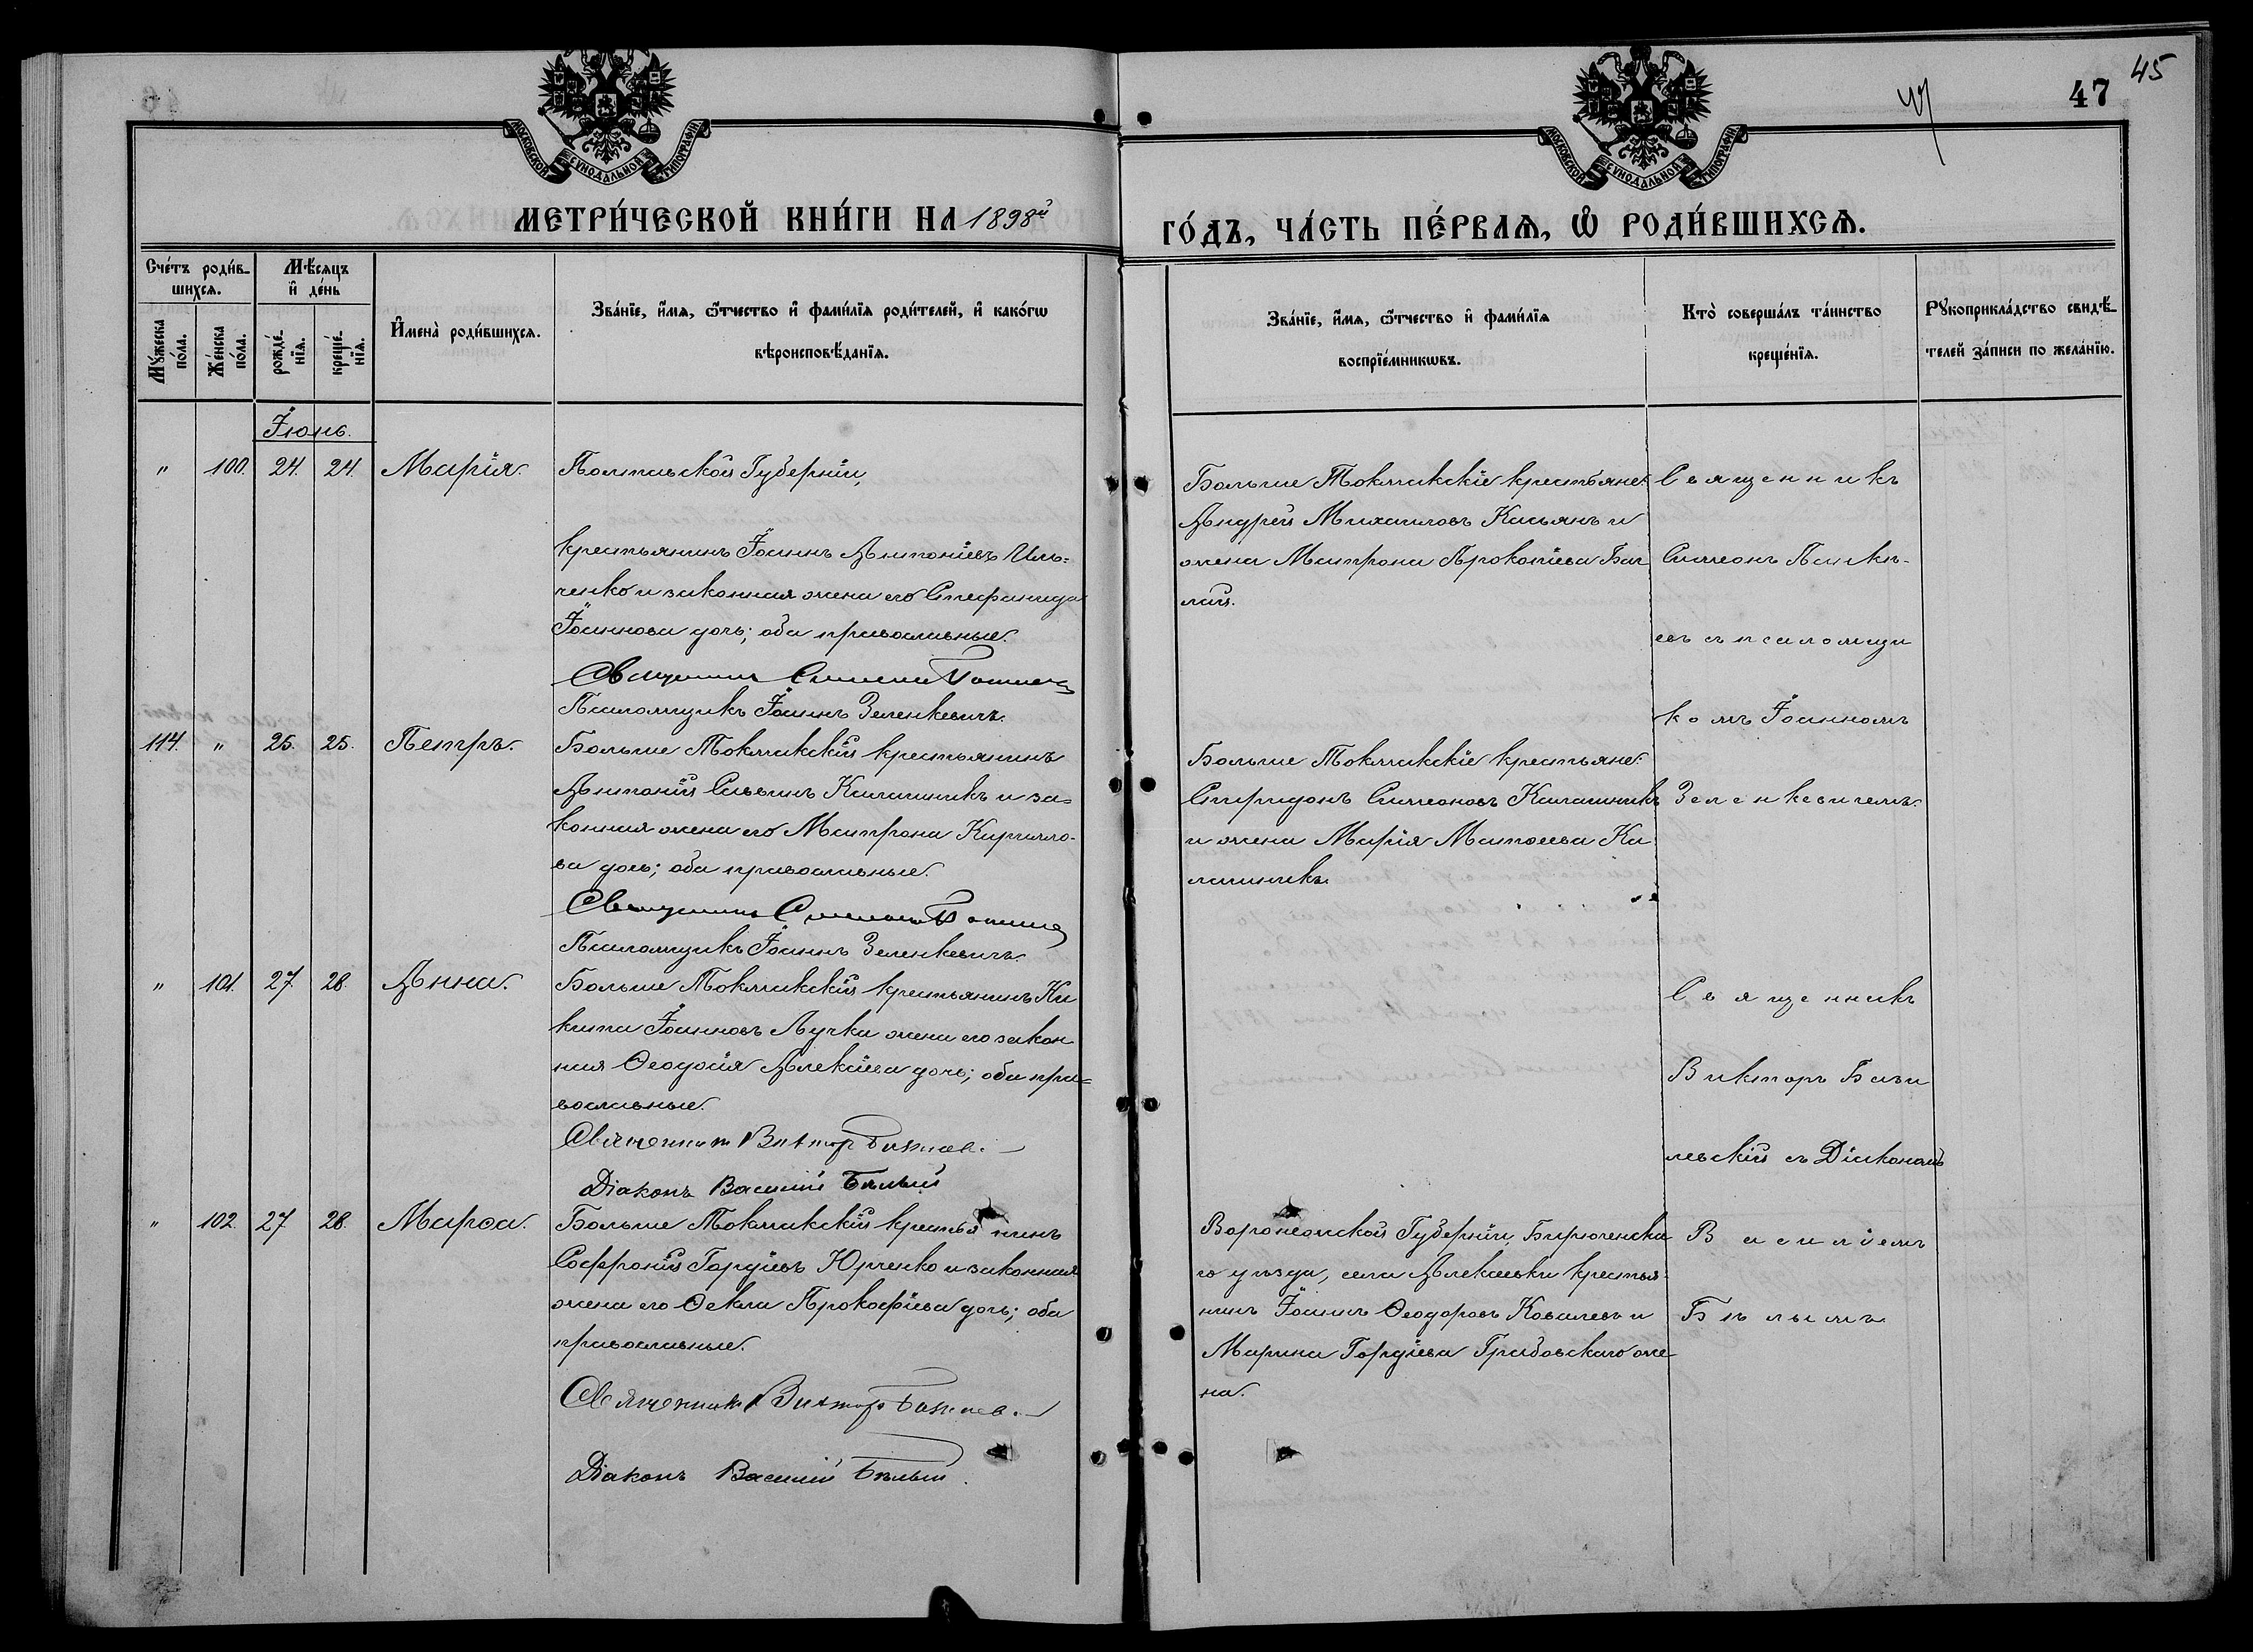 45
47
МОСКОВСКОЙ СУНОДАЛЬНОЙ ТИПОГРАФІИ
МОСКОВСКОЙ СУНОДАЛЬНОЙ ТИПОГРАФІИ
МЕТРИ́ЧЕСКОЙ КНИ́ГИ НА 1898й
ГО́ДЪ, ЧА́СТЬ ПЕ́РВАѦ, Ѡ РОДИ́ВШИХСѦ.
Сче́тъ роди́в-
шихсѧ.
Мѣ́сѧцъ
и҆ де́нь
Мꙋ́жеска по́ла.
Же́нска по́ла.
рожде́-
нїѧ.
креще́-
нїѧ.
И҆мена̀ роди́вшихсѧ.
Зва́нїе, и҆́мѧ, ѻ҆́тчество и҆ фами́лїѧ роди́телей, и҆ како́гѡ
вѣроисповѣ́данїѧ.
Зва́нїе, и҆́мѧ, ѻ҆́тчество и҆ фами́лїѧ
воспрїе́мникѡвъ.
Кто̀ соверша́лъ та́инство
креще́нїѧ.
Рꙋкоприкла́дство свидѣ́-
телей за́писи по жела́нїю.
Іюнь.
" 100. 24. 24. Марія. Полтавской Губерніи,
крестьянинъ Іоаннъ Антоніевъ Иль=
ченко и законная жена его Стефанида
Іоаннова дочь; оба православные.
Псаломщикъ Іоаннъ Зеленкевичъ.
Больше Токмакскіе крестьяне:
Андрей Михаиловъ Касьянъ и
жена Матрона Прокопіева Баг
лай.
Священникъ
Симеонъ
съ псаломщи
комъ Іоанномъ
Зеленкевичемъ.
114. " 25. 25. Петръ. Больше Токмакскій крестьянинъ
Антоній Саввинъ Калашникъ и за=
конная жена его Матрона Кирилло-
ва дочь; оба православные.
Псаломщикъ Іоаннъ Зеленкевичъ.
Больше Токмакскіе крестьяне:
Спиридонъ Симеоновъ Калашникъ
и жена Марія Матѳеева Ка
лашникъ.
" 101. 27. 28. Анна. Больше Токмакскій крестьянинъ Ни
кита Іоанновъ Лучка жена его закон
ная Ѳеодосія Алексіева дочь; оба пра=
вославные.
Священникъ Викторъ
Діаконъ Василій Бѣлый
Священникъ
Викторъ Бази
левскій съ Діакономъ
Василіемъ
Бѣлымъ.
" 102. 27. 28. Марѳа. Больше Токмакскій крестьянинъ
Софроній Гордіевъ Юрченко и законная
жена его Ѳекла Прокофіева дочь; оба
православные.
Священникъ Викторъ
Діаконъ Василій Бѣлый.
Воронежской Губерніи, Бирюченска
го уѣзда, села Алексѣевки крестья-
нинъ Іоаннъ Ѳеодоровъ Ковалевъ и
Марина Гордіева Грабовскаго же
на.